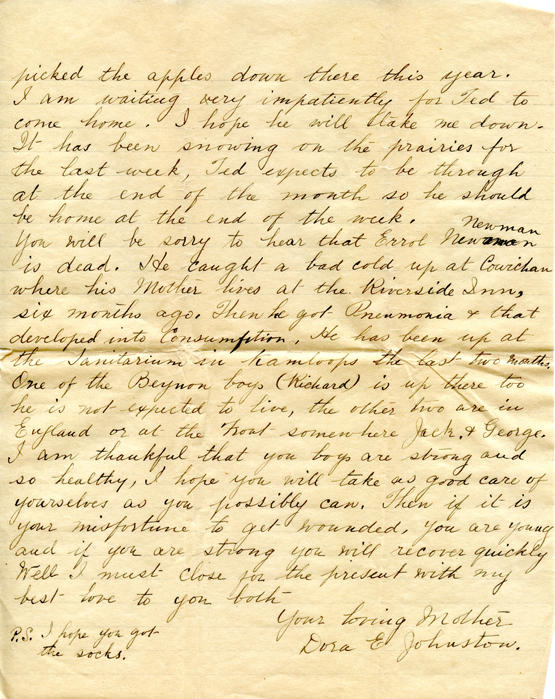 picked the apples down there this year.
I am waiting very impatiently for Ted to
come home. I hope he will take me down.
It has been snowing on the prairies for
the last week, Ted expects to be through
at the end of the month so he should
be home at the end of the week.
Newman
You will be sorry to hear that Errol Newman
is dead. He caught a bad cold up at Cowichan
where his Mother lives at the Riverside Inn,
six months ago. Then he got Pneumonia & that
developed into Consumption. He has been up at
the Sanitarium in Kamloops the last two months.
One of the Beynon boys (Richard) is up there too
he is not expected to live, the other two are in
England or at the front somewhere Jack & George.
I am thankful that you boys are strong and
so healthy, I hope you will take as good care of
yourselves as you possibly can. Then if it is
your misfortune to get wounded, you are young
and if you are strong you will recover quickly
Well I must close for the present with my
best love to you both
Your loving Mother
Dora E. Johnston.
P.S. I hope you got
the socks.